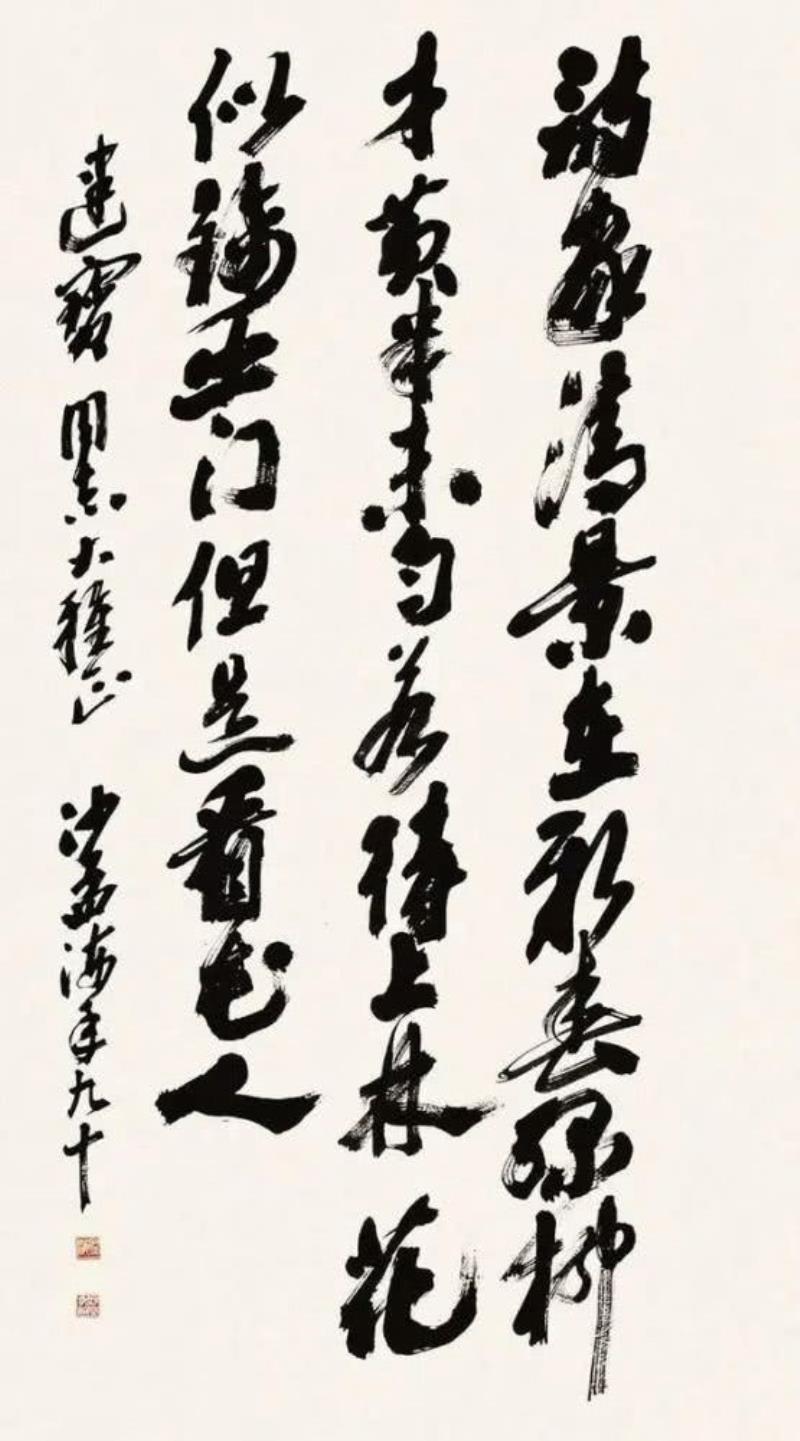 诗家清景在新春绿柳
才黄半未匀若待上林花
似锦出门但是看花人
建宝同志大雅正 沙孟海年九十